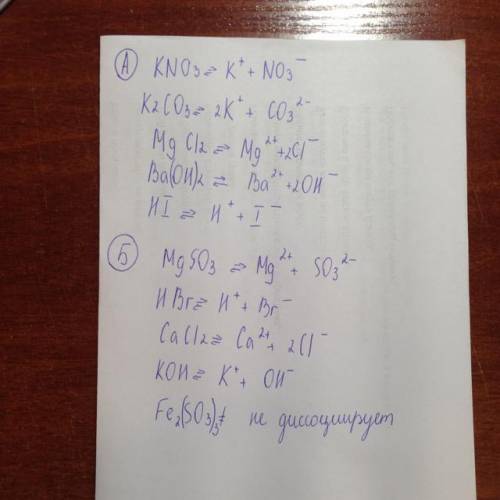 А
KNO3 ⇌ K⁺ + NO3⁻
K2CO3 ⇌ 2K⁺ + CO3²⁻
MgCl2 ⇌ Mg²⁺ + 2Cl⁻
Ba(OH)2 ⇌ Ba²⁺ + 2OH⁻
HI ⇌ H⁺ + I⁻
Б
MgSO3 ⇌ Mg²⁺ + SO3²⁻
HBr ⇌ H⁺ + Br⁻
CaCl2 ⇌ Ca²⁺ + 2Cl⁻
KOH ⇌ K⁺ + OH⁻
Fe2(SO3)3 ≠ не диссоциирует